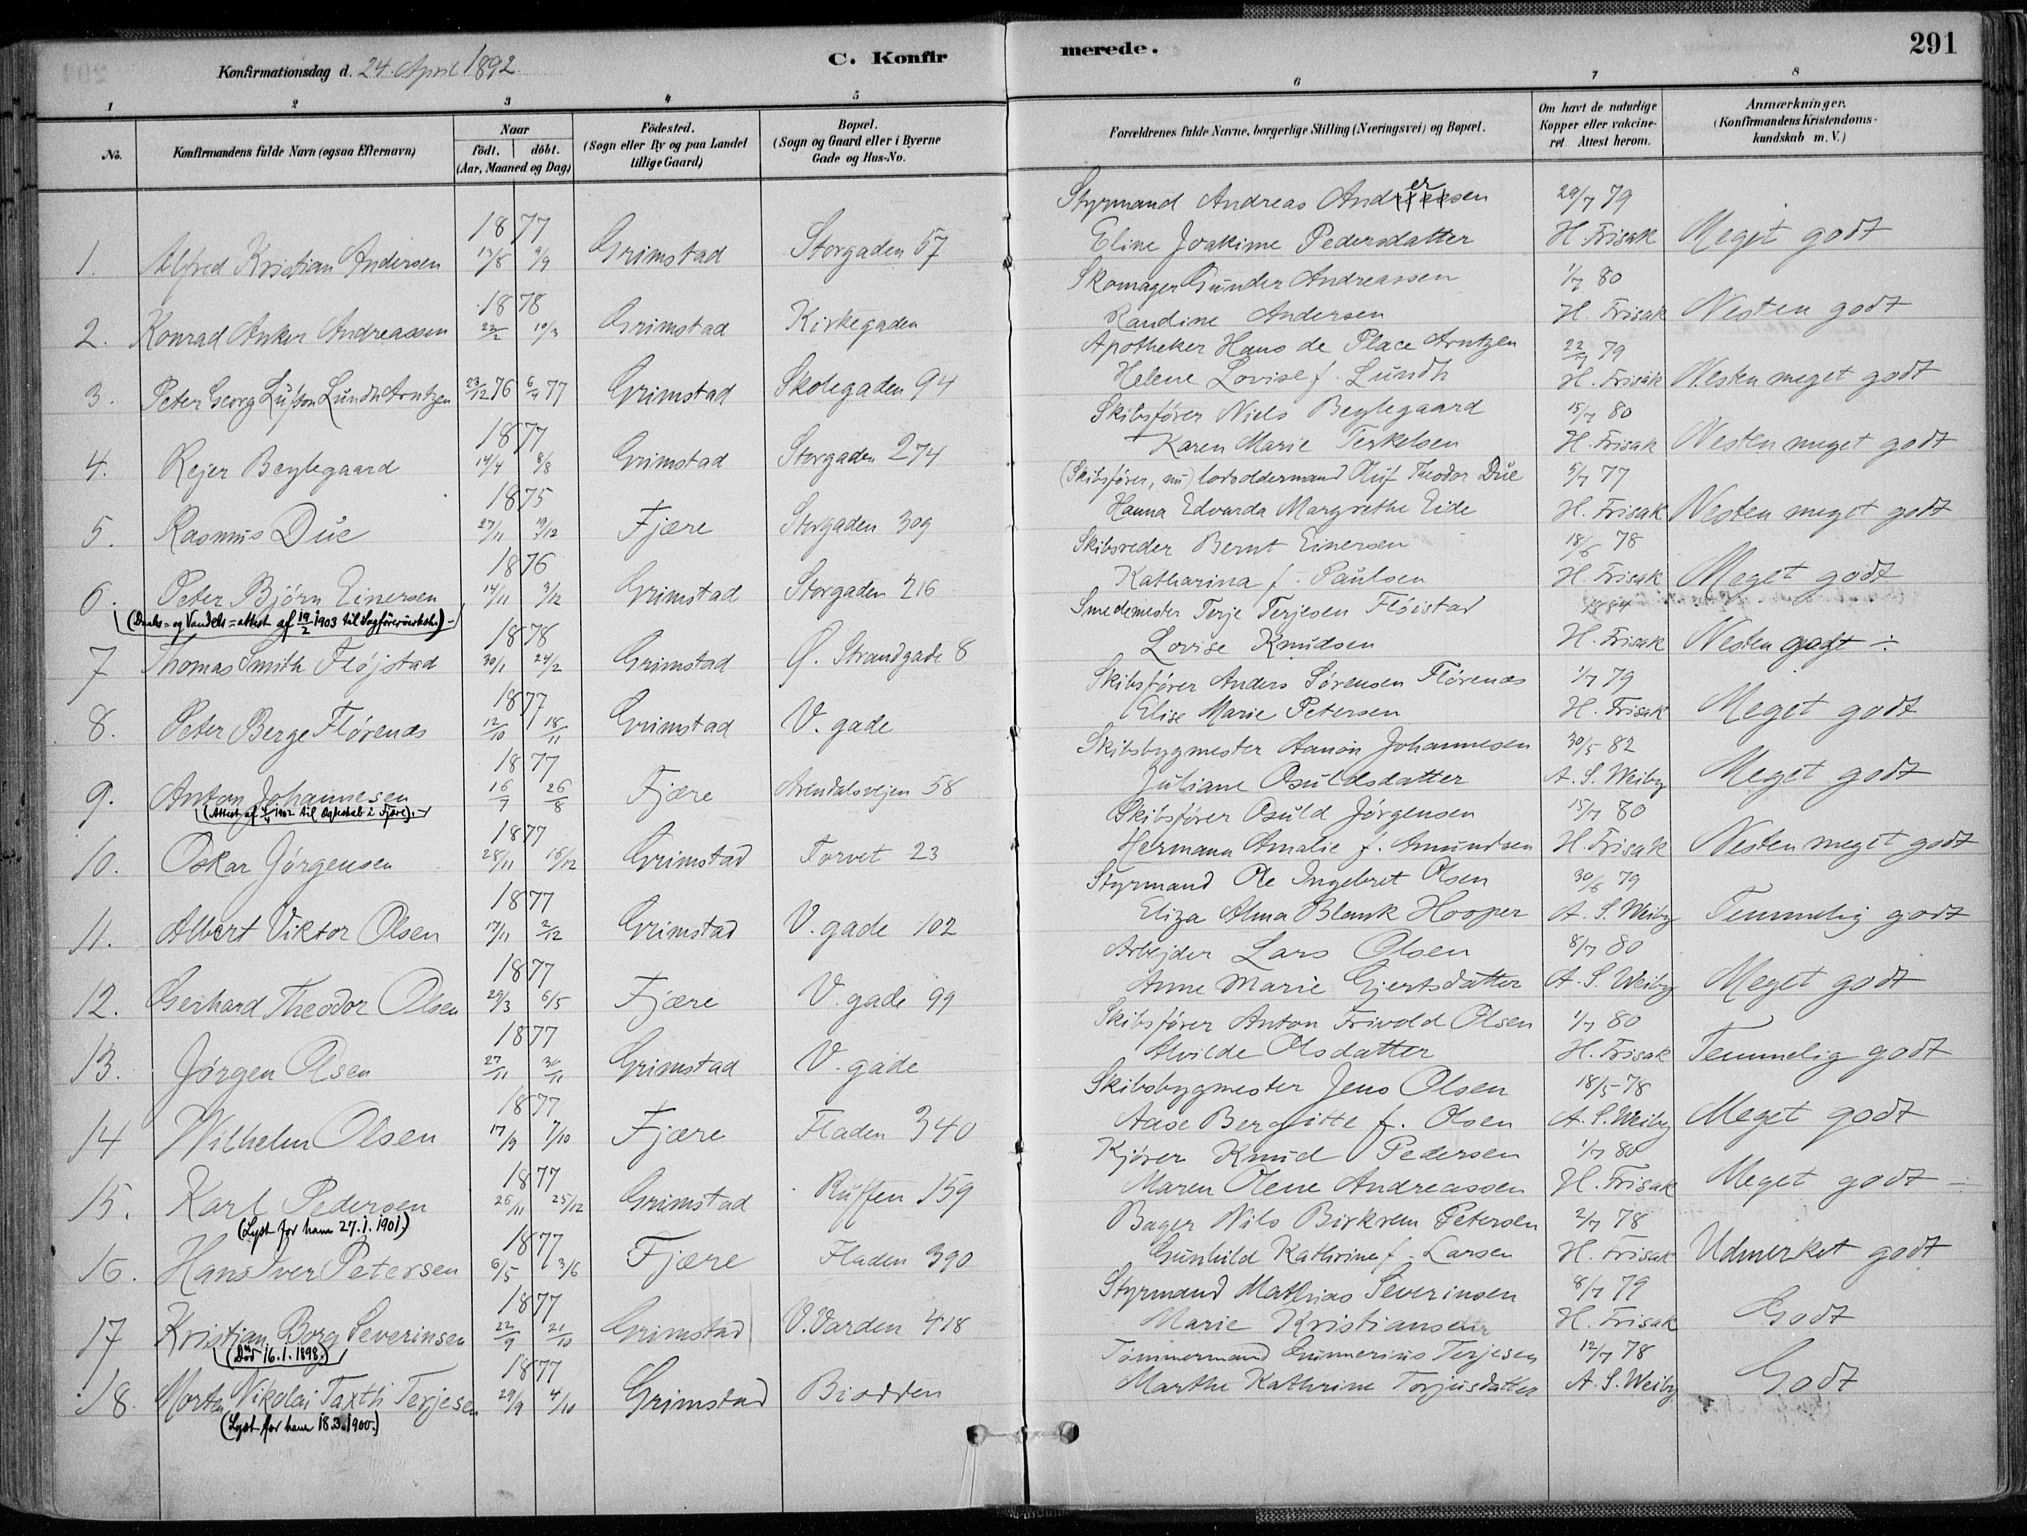 Konfirmationsdag d. 24. April 1892.
C. Konfirmerede.
291
1 2 3 4 5 6 7 8
No.
Konfirmandens fulde Navn (ogsaa Efternavn)
Naar
födt. döbt.
(Aar, Maaned og Dag)
Födested.
(Sogn eller By og paa Landet
tillige Gaard)
Bopæl.
(Sogn og Gaard eller i Byerne
Gade og Hus-No.
Forældrenes fulde Navne, borgerlige Stilling (Næringsvei) og Bopæl.
Om havt de naturlige
Kopper eller vakcine-
ret. Attest herom.
Anmærkninger.
(Konfirmandens Kristendoms-
kundskab m. V.)
Styrmand Andreas Andersen 29/7 79
1877
1. Alfred Kristian Andersen 13/8 9/9 Grimstad Storgaden 57 Eline Joakime Pedersdatter H. Frisak Meget godt
Skomager Gunder Andreassen 1/7 80
1878
2. Konrad Anker Andreassen 22/2 10/3 Grimstad Kirkegaden Randine Andersen H. Frisak Nesten godt
Apotheker Hans de Place Arntzen 22/7 79
3. Peter Georg Lund Arntzen 23/12 76 6/4 77 Grimstad Skolegaden 94 Helene Lovise f. Lundh H. Frisak Nesten meget godt
Skibsfører Niels Beylegaard 15/7 80
1877
4. Rejer Beylegaard 14/4 8/8 Grimstad Storgaden 274 Karen Marie Terkelsen H. Frisak Nesten meget godt
(Skibsfører, nu) lodsoldermand Oluf Theodor Due 5/7 77
1875
5. Rasmus Due 27/11 19/12 Fjære Storgaden 309 Hanna Edvarda Margrethe Eide H. Frisak Nesten meget godt
Skibsreder Bernt Einersen 18/6 78
1876
6. Peter Bjørn Einersen 14/11 3/12 Grimstad Storgaden 216 Katharina f. Paulsen H. Frisak Meget godt
(Daabs= og Vandels=attest af 19/2 1903 til Sagførervirksh.)
Smedemester Terje Terjesen Fløistad 1884
1878
7 Thomas Smith Fløjstad 30/1 24/2 Grimstad Ø. Strandgade 8 Lovise Knudsen H. Frisak Nesten godt ÷
Skibsfører Anders Sørensen Flørenæs 1/7 79
1877
8. Peter Berge Flørenæs 12/10 18/11 Grimstad V. gade Elise Marie Petersen H. Frisak Meget godt
Skibsbygmester Aanon Johannesen 30/5 82
1877
9. Anton Johannesen 16/7 26/8 Fjære Arendalsvejen 58 Juliane Osuldsdatter A. S. Weiby Meget godt
(Attest af 1902 til Egteskab i Fjære).
Skibsfører Osuld Jørgensen 15/7 80
1877
10. Oskar Jørgensen 28/11 18/12 Grimstad Torvet 23 Hermana Amalie f. Amundsen H. Frisak Nesten meget godt
Styrmand Ole Ingebret Olsen 30/6 79
1877
11. Albert Viktor Olsen 17/11 2/12 Grimstad V. gade 102 Eliza Alma Blank Hooper A. S. Weiby Temmelig godt
Arbejder Lars Olsen 8/7 80
1877
12. Gerhard Theodor Olsen 29/3 6/5 Fjære V. gade 99 Anne Marie Gjertsdatter A. S. Weiby Meget godt
Skibsfører Anton Frivold Olsen 1/7 80
1877
13. Jørgen Olsen 27/11 Grimstad V. gade Alvilde Olsdatter H. Frisak Temmelig godt
Skibsbygmester Jens Olsen 18/5 78
1877
14 Wilhelm Olsen 17/9 7/10 Fjære Fladen 340 Aase Bergitte f. Olsen A. S. Weiby Meget godt
Kjører Knud Pedersen 1/7 80
1877
15. Karl Pedersen 26/11 25/12 Grimstad Ruffen 159 Maren Olene Andreassen H. Frisak Meget godt ÷
(Lyst for ham 27.1.1901)
Bager Nils Birkrem Petersen 2/7 78
1877
16. Hans Iver Petersen 6/5 3/6 Fjære Fladen 390 Gunhild Kathrine f. Larsen H. Frisak Udmerket godt
Styrmand Mathias Severinsen 8/7 79
1877
17 Kristian Borg Severinsen 22/9 21/10 Grimstad V. Varden 418 Marie Kristiansen H. Frisak Godt
(Död 16.1.1898.)
Tømmermand Gunnerius Terjesen 12/7 78
1877
18. Morten Nikolai Taxth Terjesen 29/9 4/10 Grimstad Biodden Marthe Kathrine Torjusdatter A. S. Weiby Godt
(Lyst for ham 18.3.1900.)